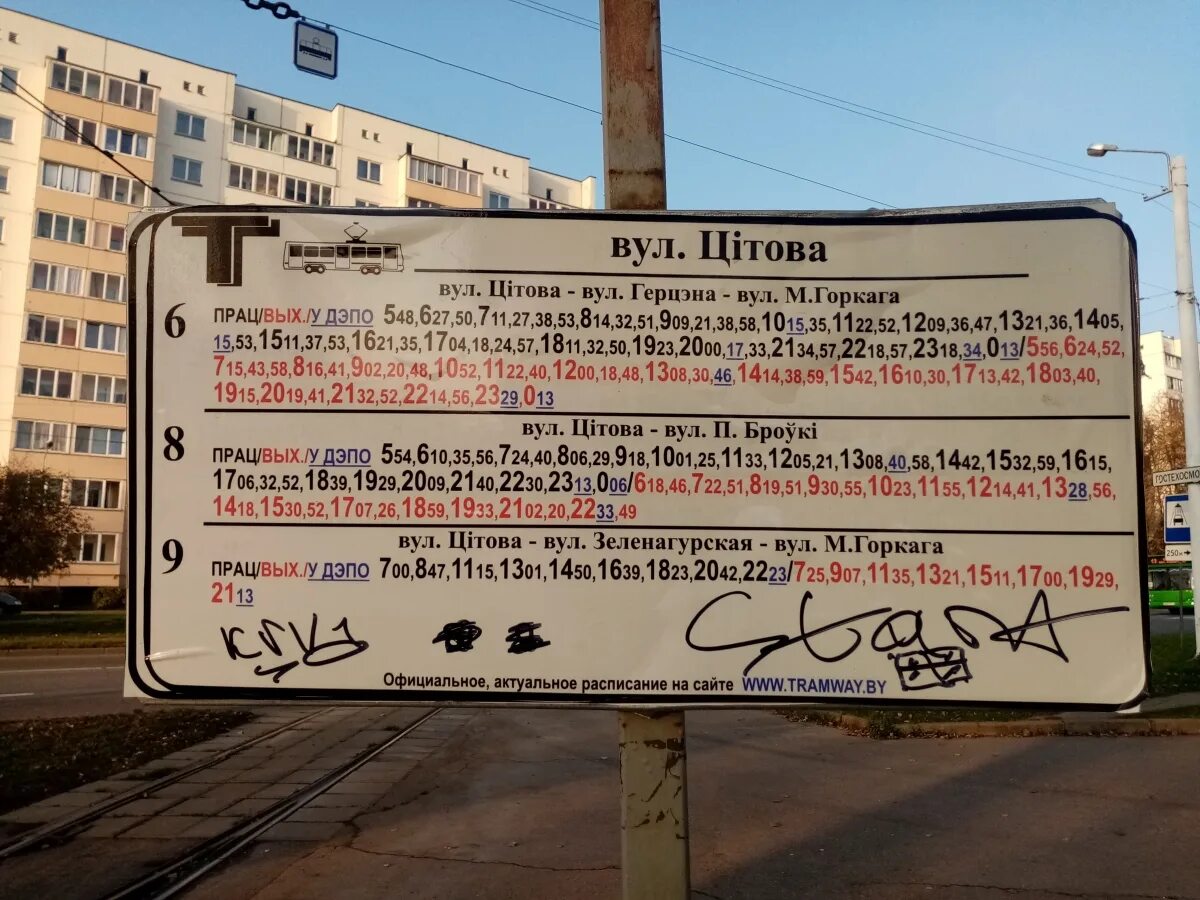 Т
вул. Цітова
вул. Цітова - вул. Герцэна - вул. М.Горкага
6
ПРАЦ/ВЫХ./У ДЭПО 548,627,50,711,27,38,53,814,32,51,909,21,38,58,1015,35,1122,52,1209,36,47,1321,36,1405,
15,53,1511,37,53,1621,35,1704,18,24,57,1811,32,50,1923,2000,17,33,2134,57,2218,57,2318,34,013/556,624,52,
715,43,58,816,41,902,20,48,1052,1122,40,1200,18,48,1308,30,46,1414,38,59,1542,1610,30,1713,42,1803,40,
1915,2019,41,2132,52,2214,56,2329,013
вул. Цітова - вул. П. Броўкі
8
ПРАЦ/ВЫХ./У ДЭПО 554,610,35,56,724,40,806,29,918,1001,25,1133,1205,21,1308,40,58,1442,1532,59,1615,
1706,32,52,1839,1929,2009,2140,2230,2313,006/618,46,722,51,819,51,930,55,1023,1155,1214,41,1328,56,
1418,1530,52,1707,26,1859,1933,2102,20,2233,49
вул. Цітова - вул. Зеленагурская - вул. М.Горкага
9
ПРАЦ/ВЫХ./У ДЭПО 700,847,1115,1301,1450,1639,1823,2042,2223/725,907,1135,1321,1511,1700,1929,
2113
Официальное, актуальное расписание на сайте WWW.TRAMWAY.BY
250м